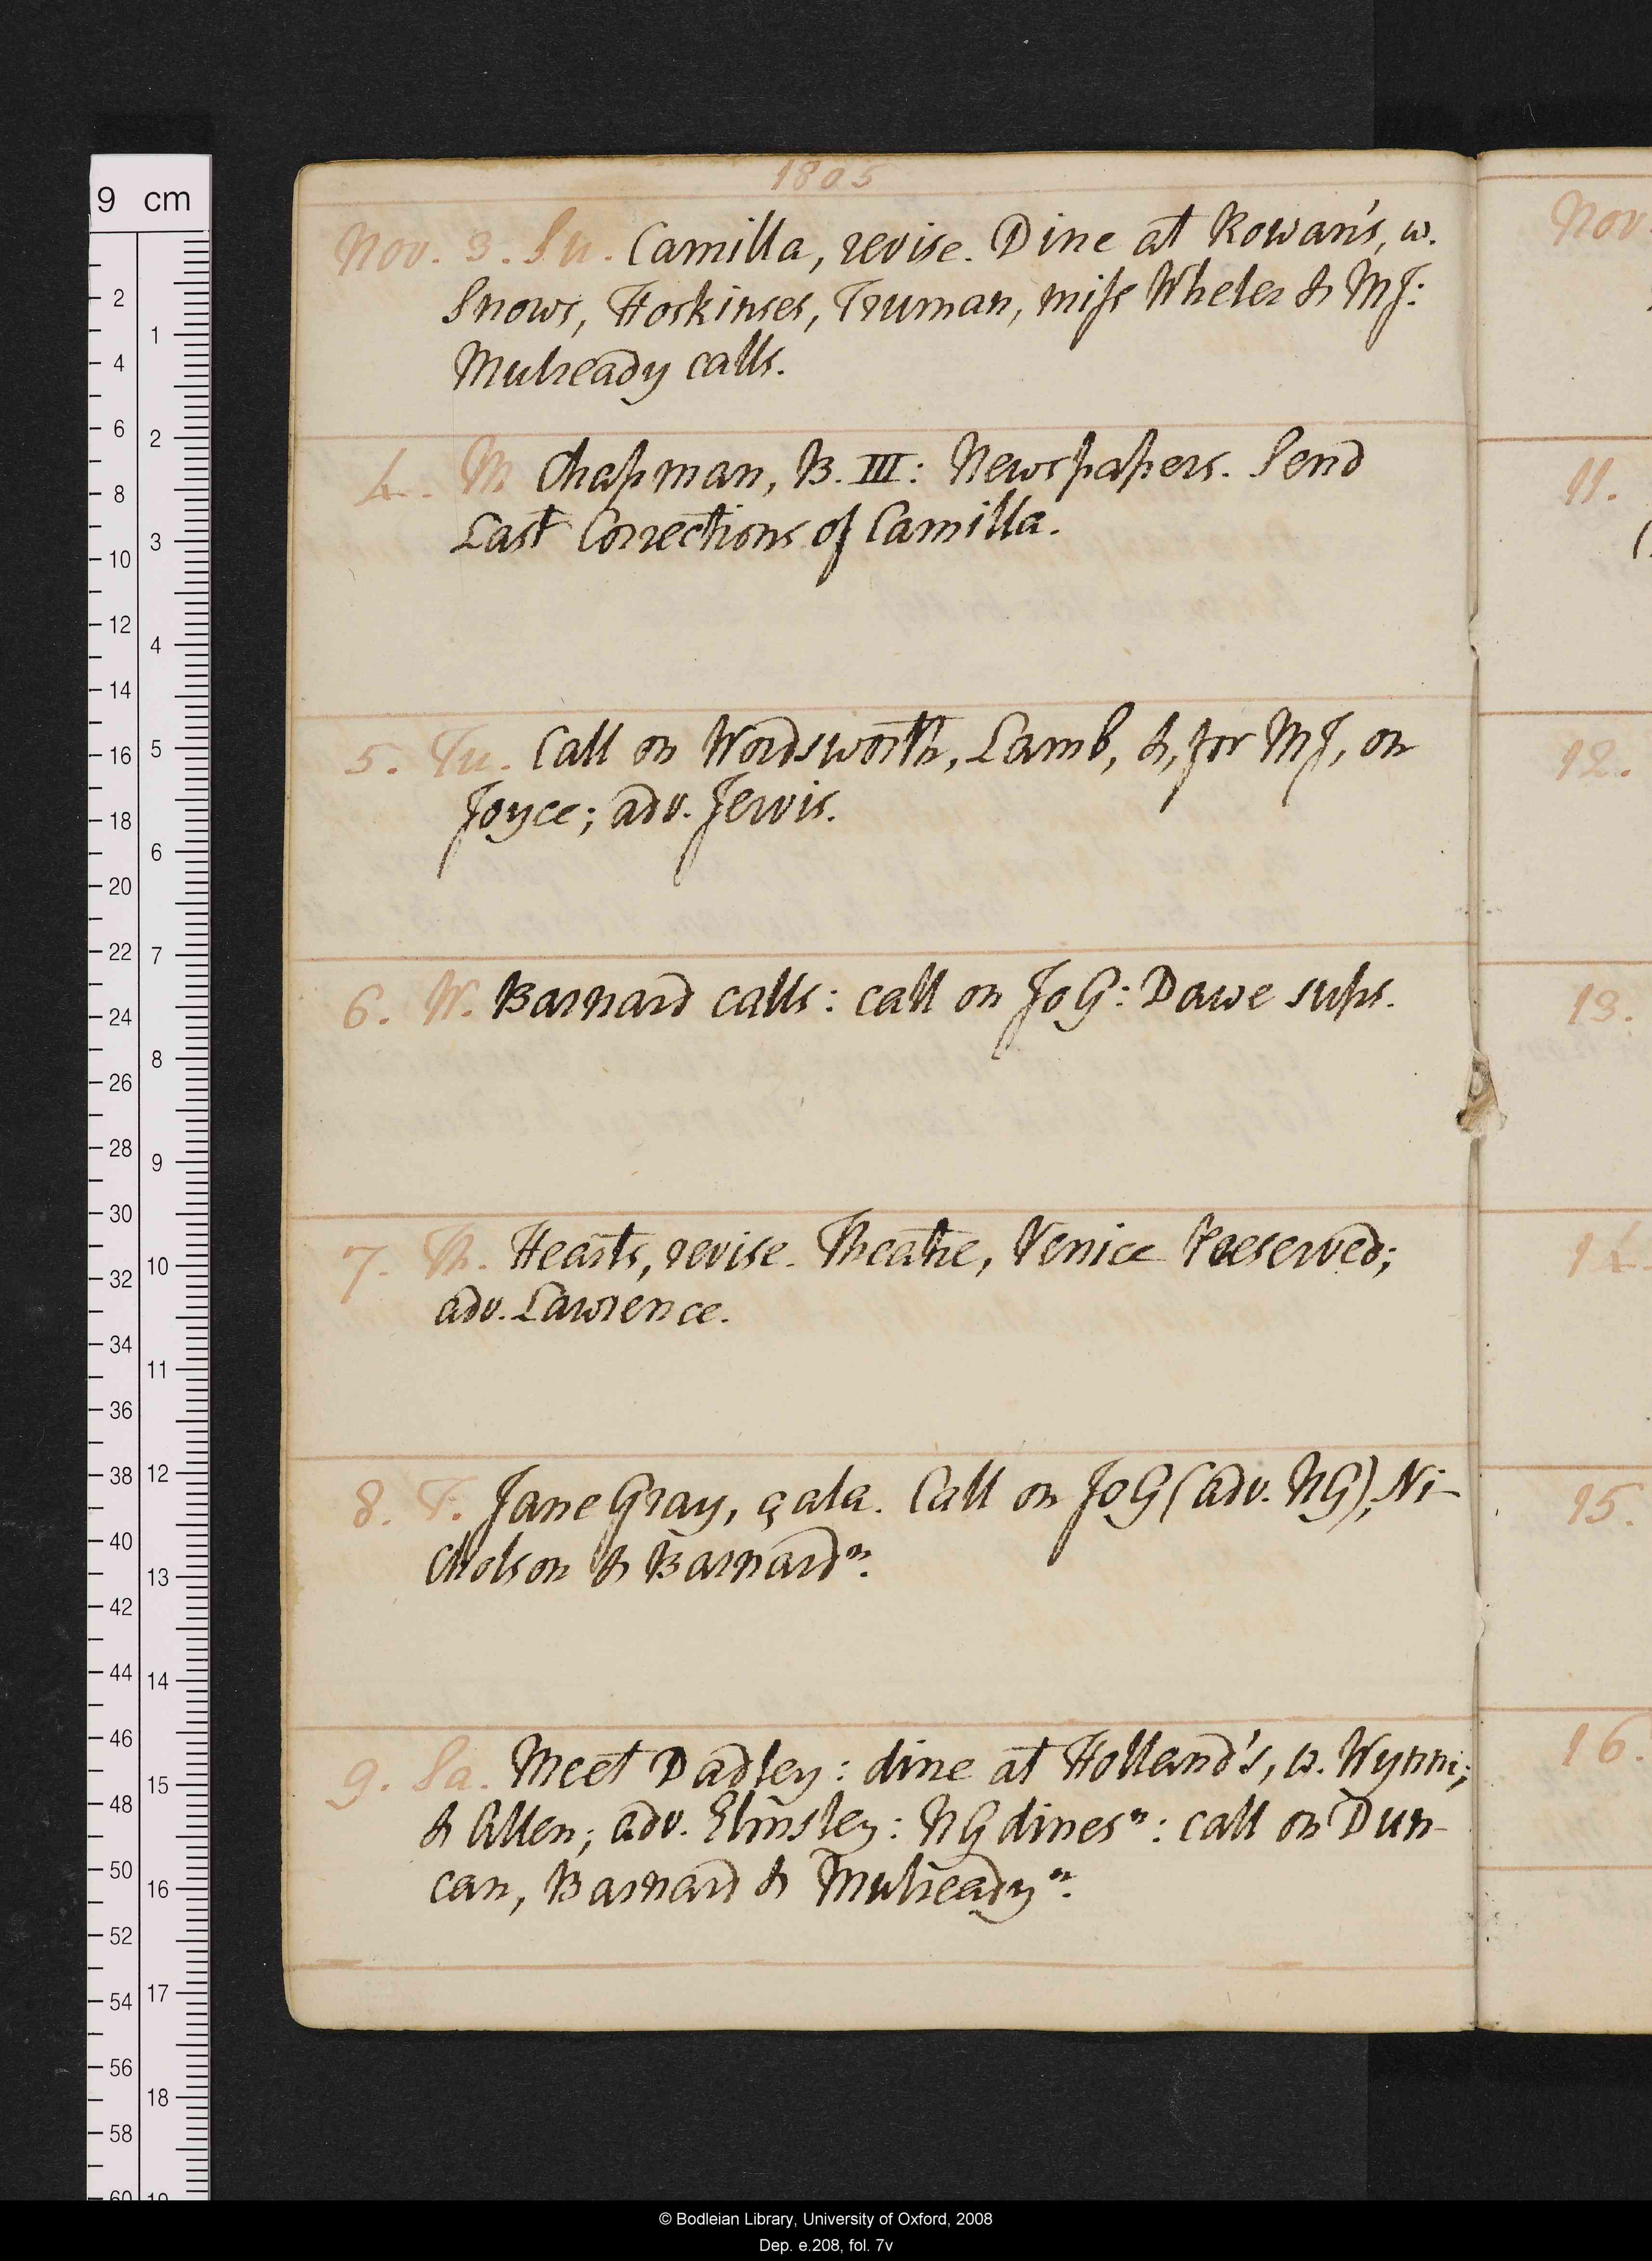 1805
Nov. 3. Su. Camilla, revise. Dine at Rowan's, w.
Snows, Hoskinses, Truman, miſs Wheler & MJ:
Mulready calls.
4. M Chapman, B. III: Newspapers. Send
Last Corrections of Camilla.
5. Tu. Call on Wordsworth, Lamb, &, for MJ, on
Joyce; adv. Jervis.
6. W. Barnard calls: call on JoG: Dawe sups.
7. Th. Hearts, revise. Theatre, Venice Preserved;
adv. Lawrence.
8. F. Jane Gray, çala. Call on JoG (adv. NG), Ni-
cholson & Barnard ⁿ.
9. Sa. Meet Dadley: dine at Holland's, w. Wynn;
& Allen; adv. Elmsley: NG dines ⁿ: call on Dun-
can, Barnard & Mulready ⁿ.
Nov
11.
12.
13.
14.
15.
16.
9 cm
2 4 6 8 10 12 14 16 18 20 22 24 26 28 30 32 34 36 38 40 42 44 46 48 50 52 54 56 58 60
1 2 3 4 5 6 7 8 9 10 11 12 13 14 15 16 17 18 19
© Bodleian Library, University of Oxford, 2008
Dep. e.208, fol. 7v